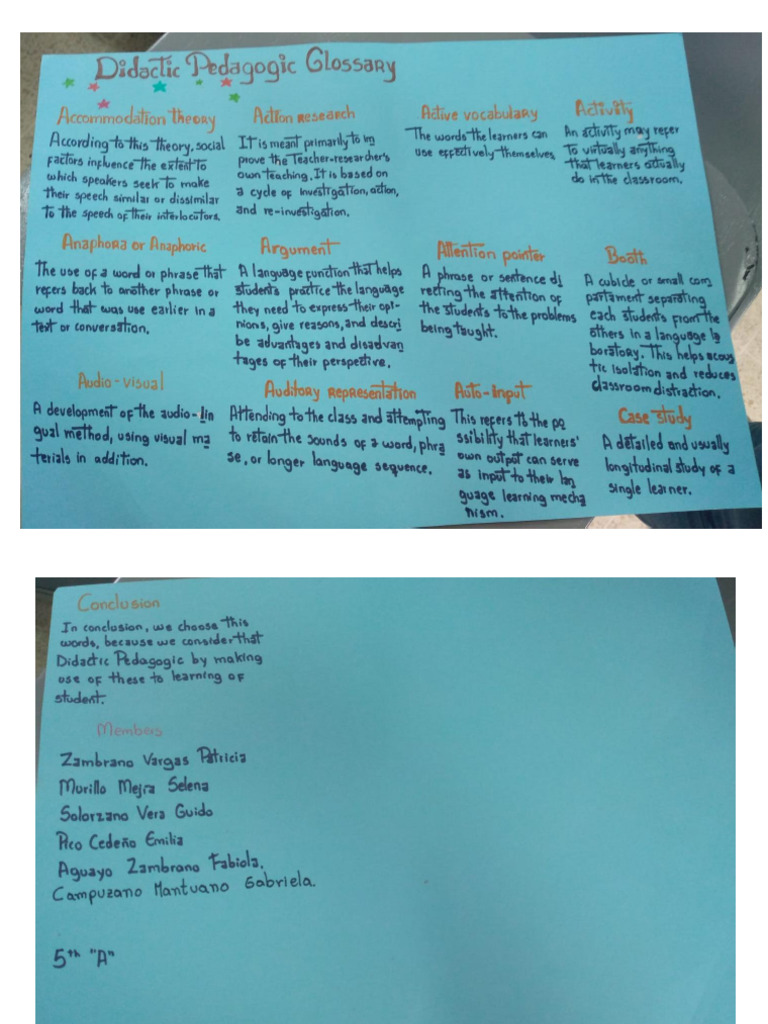 Didactic Pedagogic Glossary
Accommodation theory
According to this theory, social
factors influence the extent to
which speakers seek to make
their speech similar or dissimilar
to the speech of their interlocutors.
Action research
It is meant primarily to im
prove the Teacher-researcher's
own teaching. It is based on
a cycle of investigation, action,
and re-investigation.
Active vocabulary
The words the learners can
use effectively themselves
Activity
An activity may refer
to virtually anything
that learners actually
do in the classroom.
Anaphora or Anaphoric
The use of a word or phrase that
refers back to another phrase or
word that was use earlier in a
text or conversation.
Argument
A language function that helps
students practice the language
they need to express their opi-
nions, give reasons, and descri
be advantages and disadvan
tages of their perspective.
Attention pointer
A phrase or sentence di
recting the attention of
the students to the problems
being taught.
Booth
A cubicle or small com
partament separating
each students from the
others in a language la
boratory. This helps acous
tic isolation and reduces
classroom distraction.
Audio-visual
A development of the audio-lin
gual method, using visual ma
terials in addition.
Auditory Representation
Attending to the class and attempting
to retain the sounds of a word, phra
se, or longer language sequence.
Auto-input
This refers to the po
ssibility that learners'
own output can serve
as input to their lan
guage learning mecha
nism.
Case study
A detailed and usually
longitudinal study of a
single learner.
Conclusion
In conclusion, we choose this
words, because we consider that
Didactic Pedagogic by making
use of these to learning of
student.
Members
Zambrano Vargas Patricia
Murillo Mejia Selena
Solorzano Vera Guido
Pico Cedeño Emilia
Aguayo Zambrano Fabiola.
Campuzano Mantuano Gabriela.
5th "A"